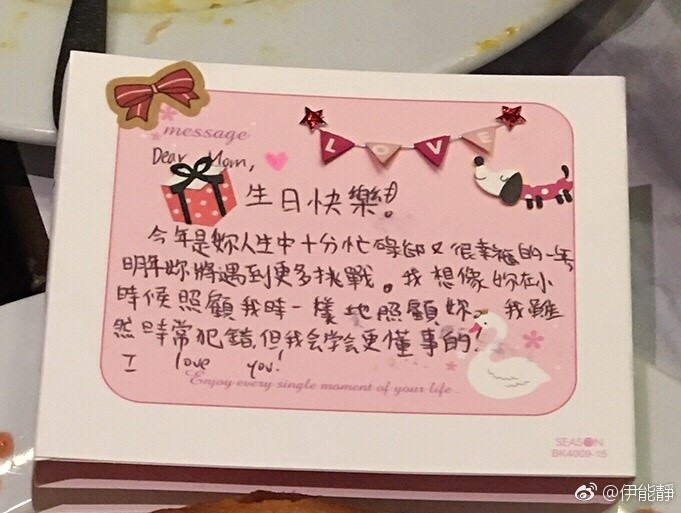 message
LOVE
Dear Mom,
生日快樂!
今年是妳人生中十分忙碌卻又很幸福的一年
明年妳將遇到更多挑戰。我想像妳在小
時候照顧我時一樣地照顧妳。我雖
然時常犯錯,但我会学会更懂事的!
I love you!
Enjoy every single moment of your life.
SEASON
BK4009-15
@伊能靜